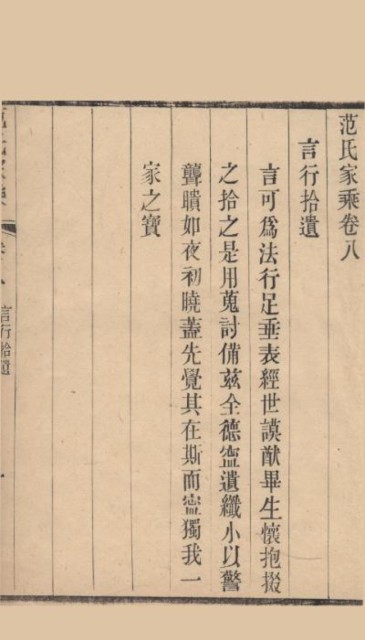 范氏家乘卷八
言行拾遺
言可爲法行足垂表經世謨猷畢生懷抱掇
之拾之是用蒐討備茲全德寍遺纖小以警
聾聵如夜初曉蓋先覺其在斯而寍獨我一
家之寶
言行拾遺